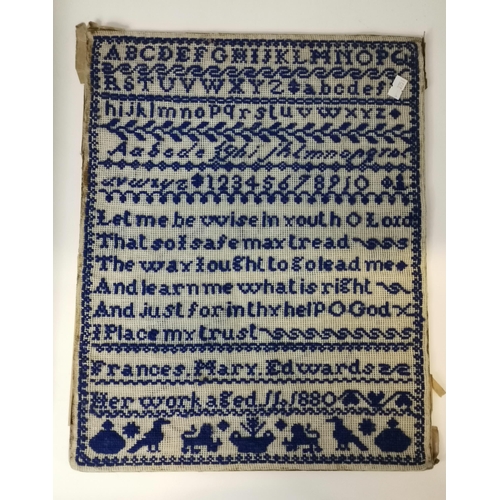 ABCDEFGHIJKLMNOPQ
RSTUVWXYZ abcdef
hijklmnopqrstuvwxyz
Aabcdefghijklmnopqrst
uvwxyz 1234567891O
Let me be wise in youth O Lord
That so I safe may tread
The way I ought to go lead me
And learn me what is right
And just for in thy help O God
I Place my trust
Frances Mary Edwards
Her work aged 11 1880